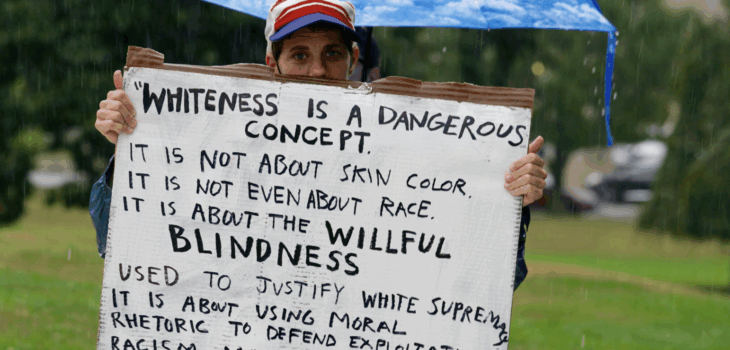 "WHITENESS IS A DANGEROUS
CONCEPT.
IT IS NOT ABOUT SKIN COLOR.
IT IS NOT EVEN ABOUT RACE.
IT IS ABOUT THE WILLFUL
BLINDNESS
USED TO JUSTIFY WHITE
IT IS ABOUT USING MORAL
RHETORIC TO DEFEND
RACISM